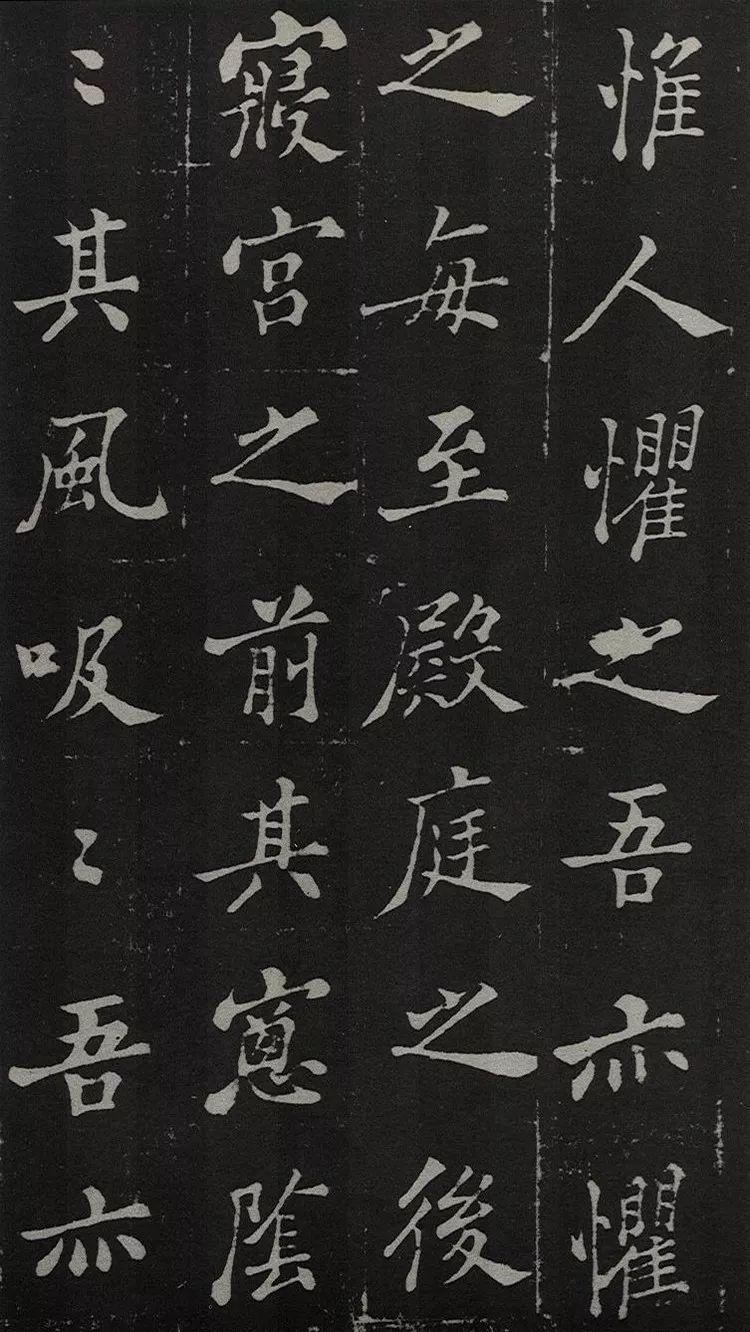 惟人懼之吾亦懼
之每至殿庭之後
寢宮之前其窻陰
〻其風吸〻吾亦